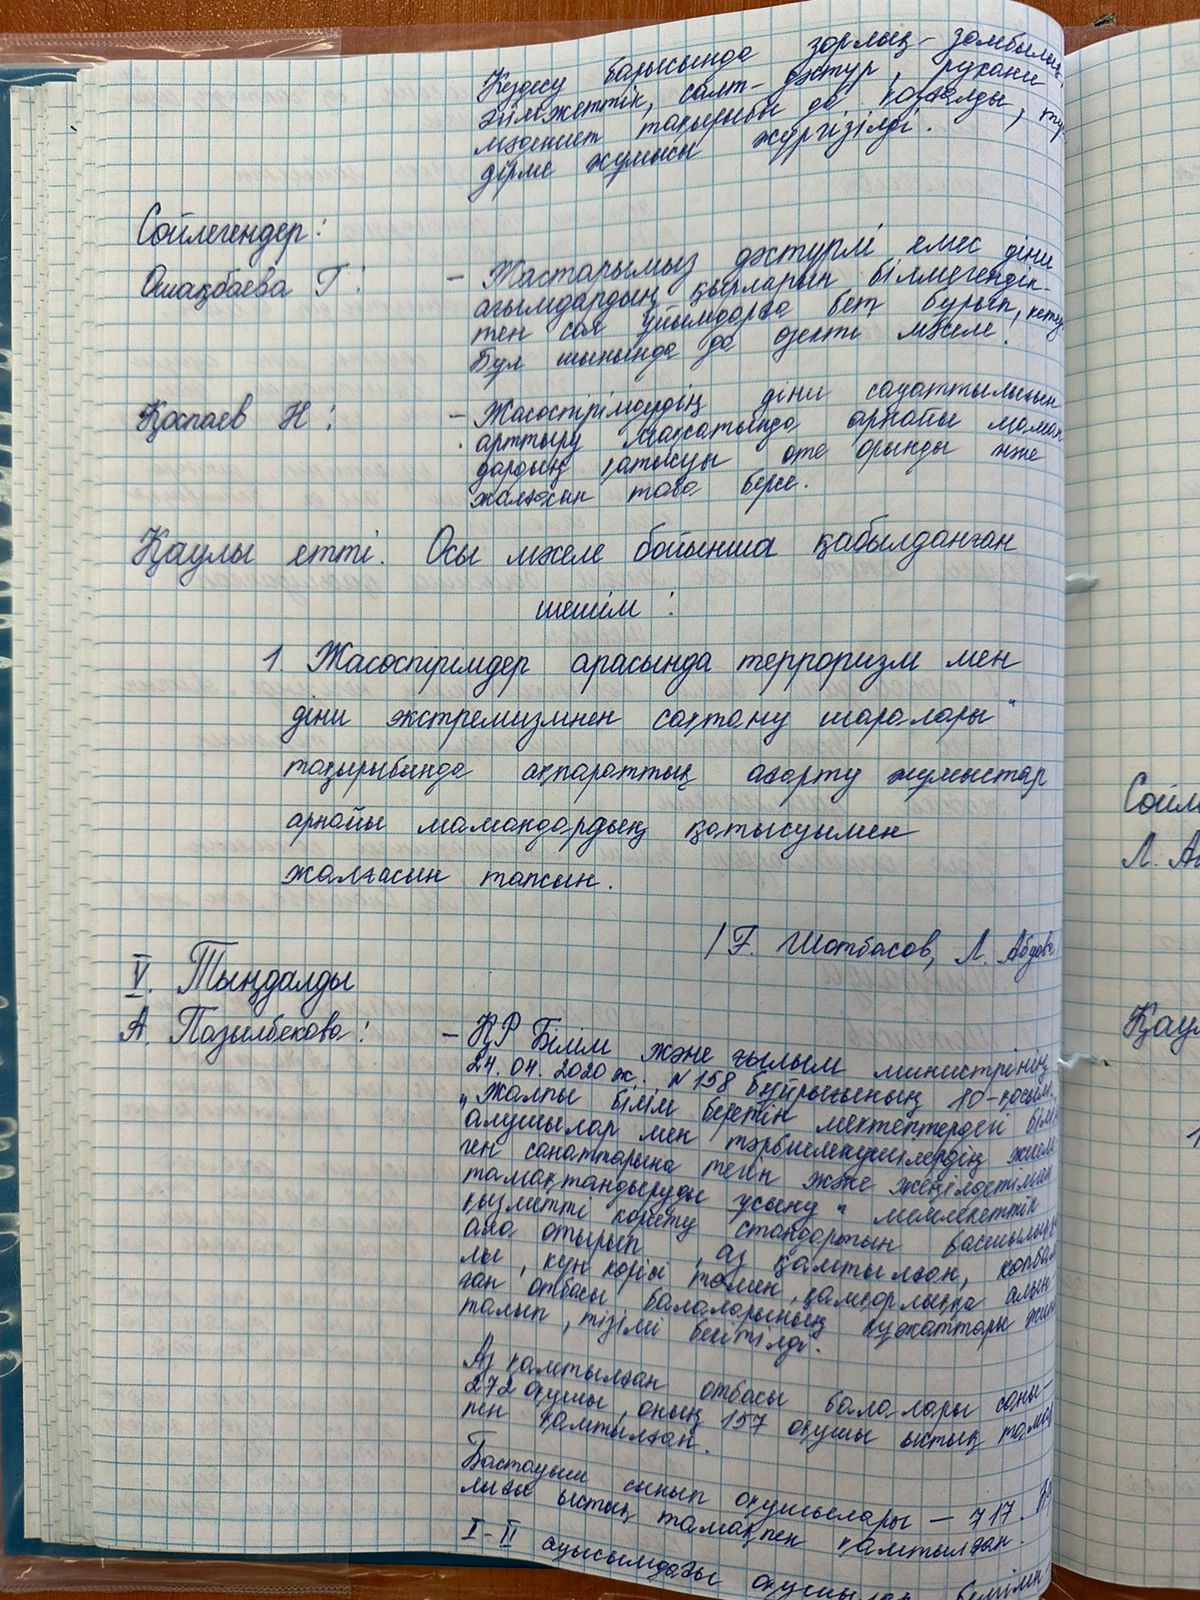 Кездесу барысында зорлық-зомбылық,
әйімжеттік, салт-дәстүр, рухани
мәдениет тақырыбы да қозғалды, түсін-
дірме жұмысы жүргізілді.
Сөйлегендер:
Ошақбаева Г: - Жастарымыз дәстүрлі емес діни
ағымдардың қырларын білмегендік-
тен сол ұйымдарға бет бұрып кетеді.
Бұл шынында да өзекті мәселе!
Қоспаев Н: - Жасөспірімдердің діни сауаттылығын
арттыру мақсатында арнайы маман
дардың қатысуы өте орынды және
жалғасын таба берсе.
Қаулы етті. Осы мәселе бойынша қабылданған
шешім:
1. Жасөспірімдер арасында терроризм мен
діни экстремизмнен сақтану шаралары"
тақырыбында ақпараттық ағарту жұмыстар
арнайы мамандардың қатысуымен
жалғасын тапсын.
/Ғ. Шотбасов, Л. Абдова
V. Тыңдалды
А. Пазылбекова: - ҚР Білім және ғылым министрінің
24.04.2020 ж. №158 бұйрығының 10-қосым.
"Жалпы білім беретін мектептердегі білім
алушылар мен тәрбиеленушілердің жекеле
ген санаттарына тегін және жеңілдетілген
тамақтандыруды ұсыну" мемлекеттік
қызметті көрсету стандартын басшылыққа
ала отырып, аз қамтылған, көпбала
лы, күн көрісі төмен, қамқорлыққа алын
ған отбасы балаларының құжаттары жина
талып, тізімі бекітілді.
Аз қамтылған отбасы балалары саны-
272 оқушы, оның 157 оқушы ыстық тамақ
пен қамтылған.
Бастауыш сынып оқушылары - 717.
лығы ыстық тамақпен қамтылған.
I-II ауысымдағы оқушылар белгілен
Сөйл
Л. Аб
Қау
1